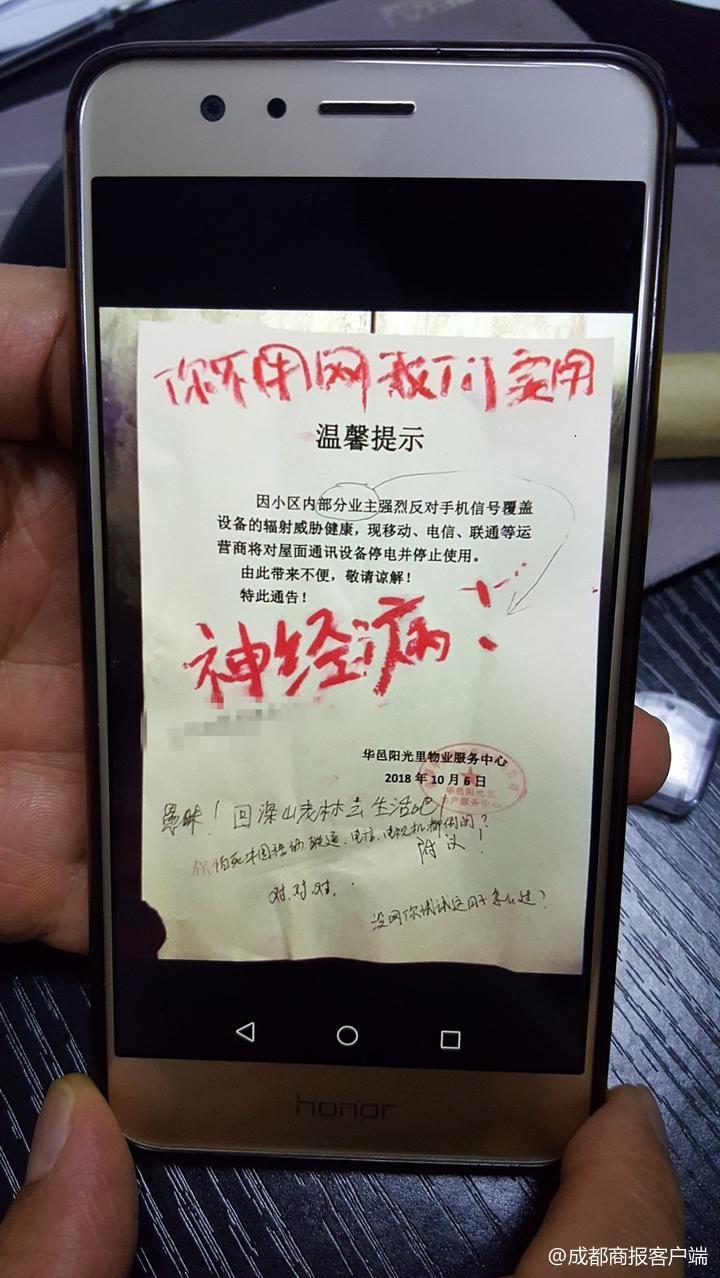 你不用网我们要用
温馨提示
因小区内部分业主强烈反对手机信号覆盖
设备的辐射威胁健康，现移动、电信、联通等运
营商将对屋面通讯设备停电并停止使用。
由此带来不便，敬请谅解！
特此通告！
神经病！
华邑阳光里物业服务中心
2018年10月6日
客户服务中心
愚昧！回深山老林去生活吧！
你怕死中国移动、联通、电信、电视机都倒闭？
附议！
对.对.对.
没网你试试这日子怎么过？
honor
@成都商报客户端